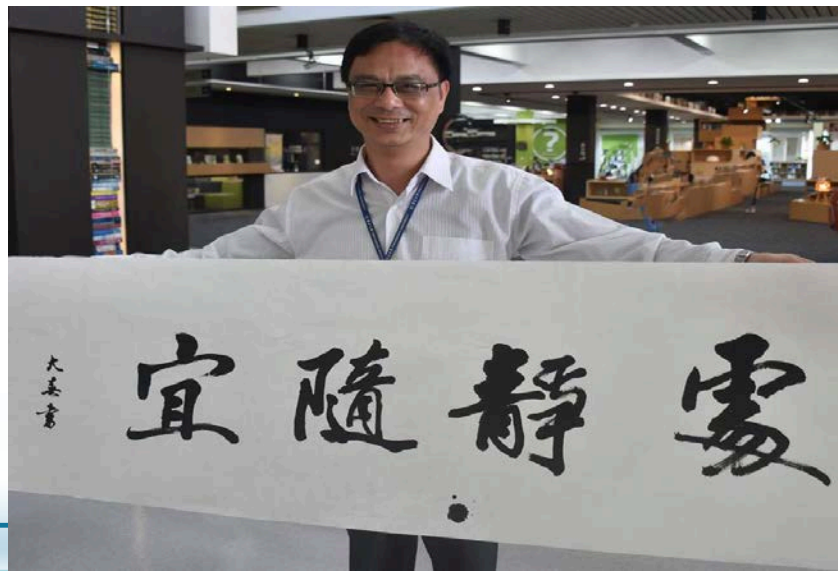 處靜隨宜
大春書